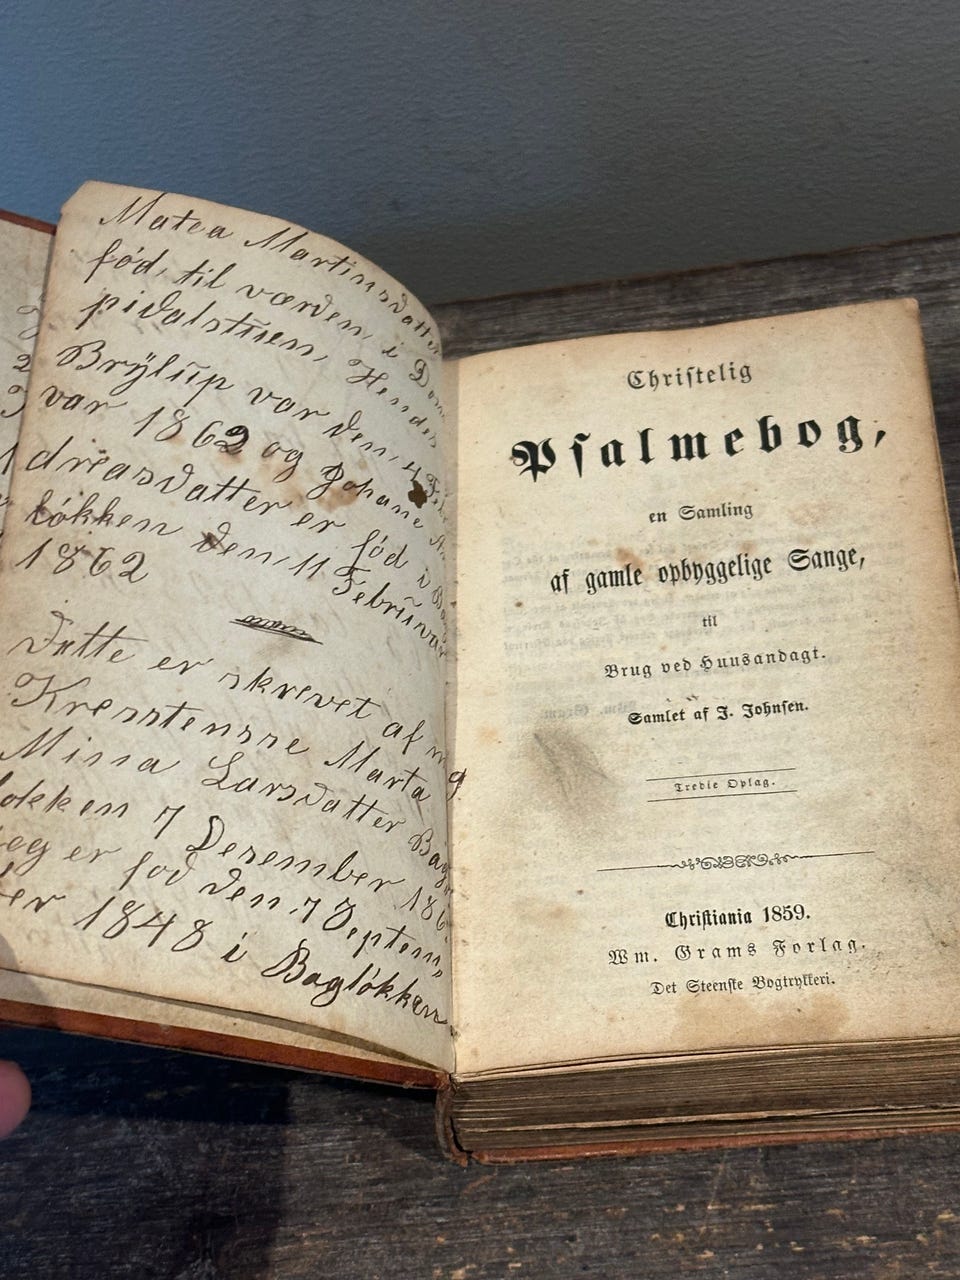 Matea Martinsdatter
fód, til værden, i Dom
pidalstuen, Hendes
Brÿlŭp var den, 4 Febr
var 1862 og Johane An
dreasdatter er fód i Bag
lókken den, 11 Februvar
1862
Dette er skrevet af mig
Kresstensse Marta
Mina Larsdatter Bag
lokken 7 Desember 186
jog er fód den, 7 Septem,
ber 1848 i Baglókken
Christelig
Psalmebog,
en Samling
af gamle opbyggelige Sange,
til
Brug ved Huusandagt.
Samlet af J. Johnsen.
Tredie Oplag.
Christiania 1859.
Wm. Grams Forlag.
Det Steenske Bogtrykkeri.